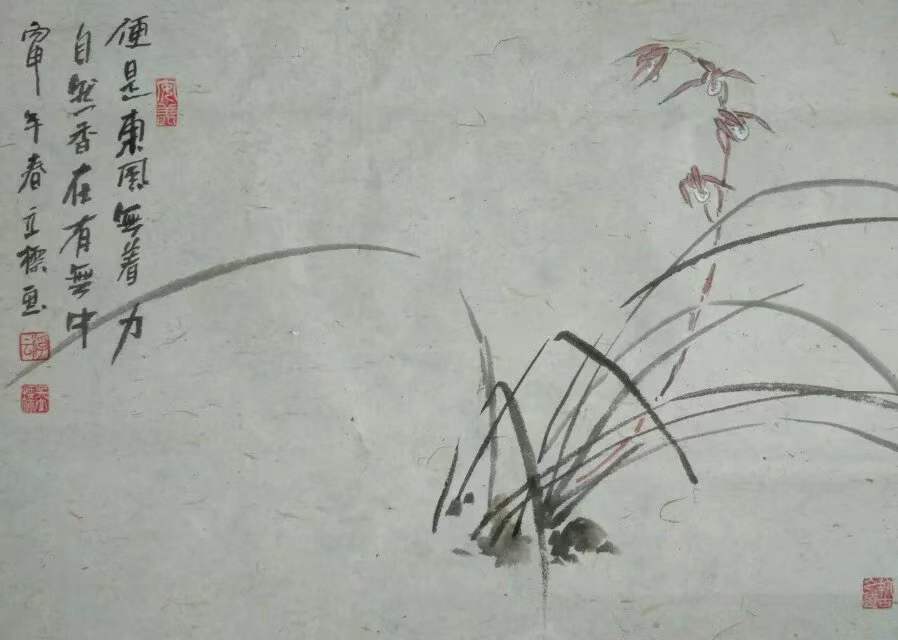 便是東風無着力
自然香在有無中
丙申年春立標画